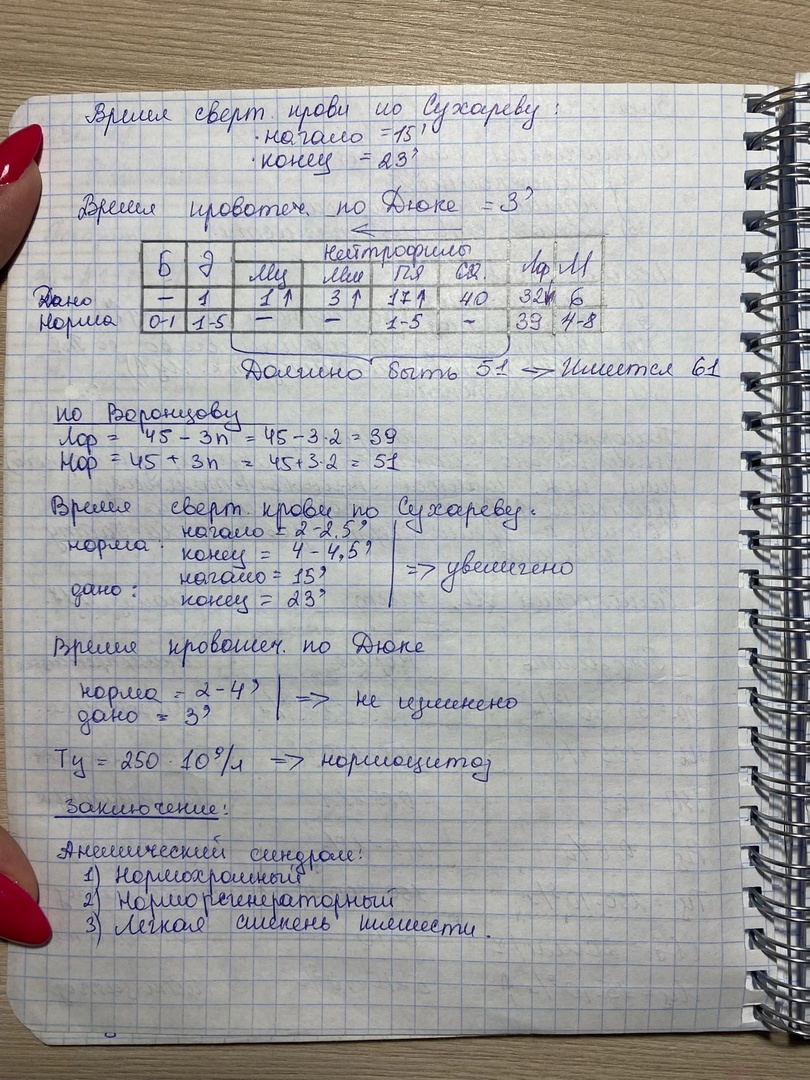 Время сверт. крови по Сухареву:
· начало = 15'
· конец = 23'
Время кровотеч. по Дюке = 3'
Б Э Нейтрофилы Лф М
Мц Мм П/Я С/Я
Дано – 1 1↑ 3↑ 17↑ 40 32↓ 6
Норма 0-1 1-5 – – 1-5 – 39 4-8
Должно быть 51 => Имеется 61
по Воронцову
Лф = 45 - 3n = 45 - 3·2 = 39
Нф = 45 + 3n = 45+3·2 = 51
Время сверт. крови по Сухареву:
норма: начало = 2-2,5'
конец = 4-4,5'
=> увеличено
дано: начало = 15'
конец = 23'
Время кровотеч. по Дюке
норма = 2-4'
дано = 3'
=> не изменено
Тц = 250 · 10⁹/л => нормоцитоз
Заключение:
Анемический синдром:
1) Нормохромный
2) Норморегенераторный
3) Легкая степень тяжести.